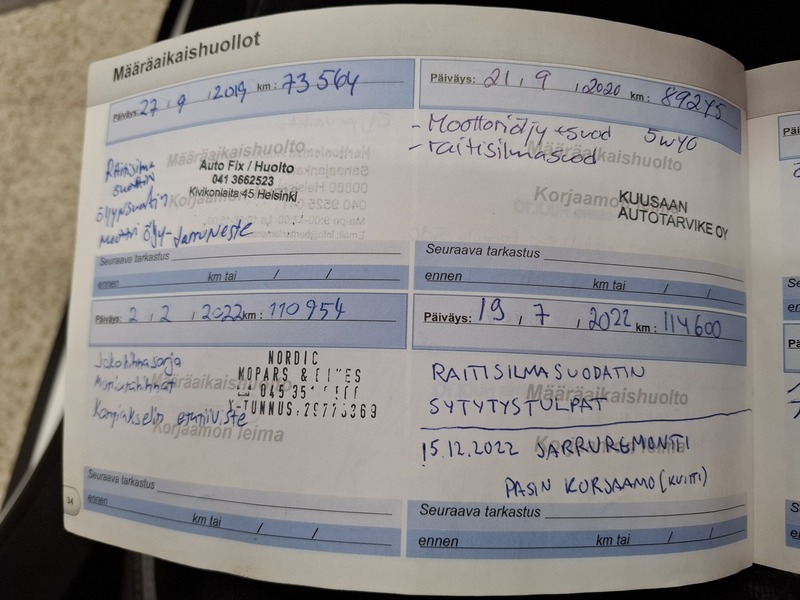 Määräaikaishuollot
Päiväys: 27, 9, 2019 km: 73 564
Auto Fix / Huolto
041 3662523
Kivikonlaita 45 Helsinki
Raitisilma
suodatin
öljynsuodatin
moottori öljy - Jarruneste
Seuraava tarkastus
ennen km tai / /
Päiväys: 21, 9, 2020 km: 89245
- Moottoriöljy + suod 5w40
- raitisilmasuod
Määräaikaishuolto
Korjaamon leima
KUUSAAN
AUTOTARVIKE OY
Seuraava tarkastus
ennen km tai / /
Päiväys: 2, 2, 2022 km: 110 954
Jakohihnasarja
Moniurahihnat
Kampiakselin etutiiviste
NORDIC
MOPARS &
045 35
Y-TUNNUS:
Määräaikaishuolto
Korjaamon leima
Seuraava tarkastus
ennen km tai / /
Päiväys: 19, 7, 2022 km: 114600
RAITISILMASUODATIN
SYTYTYSTULPAT
15.12.2022 JARRUREMONTI
PASIN KORJAAMO (KUITTI)
Määräaikaishuolto
Seuraava tarkastus
ennen km tai / /
34